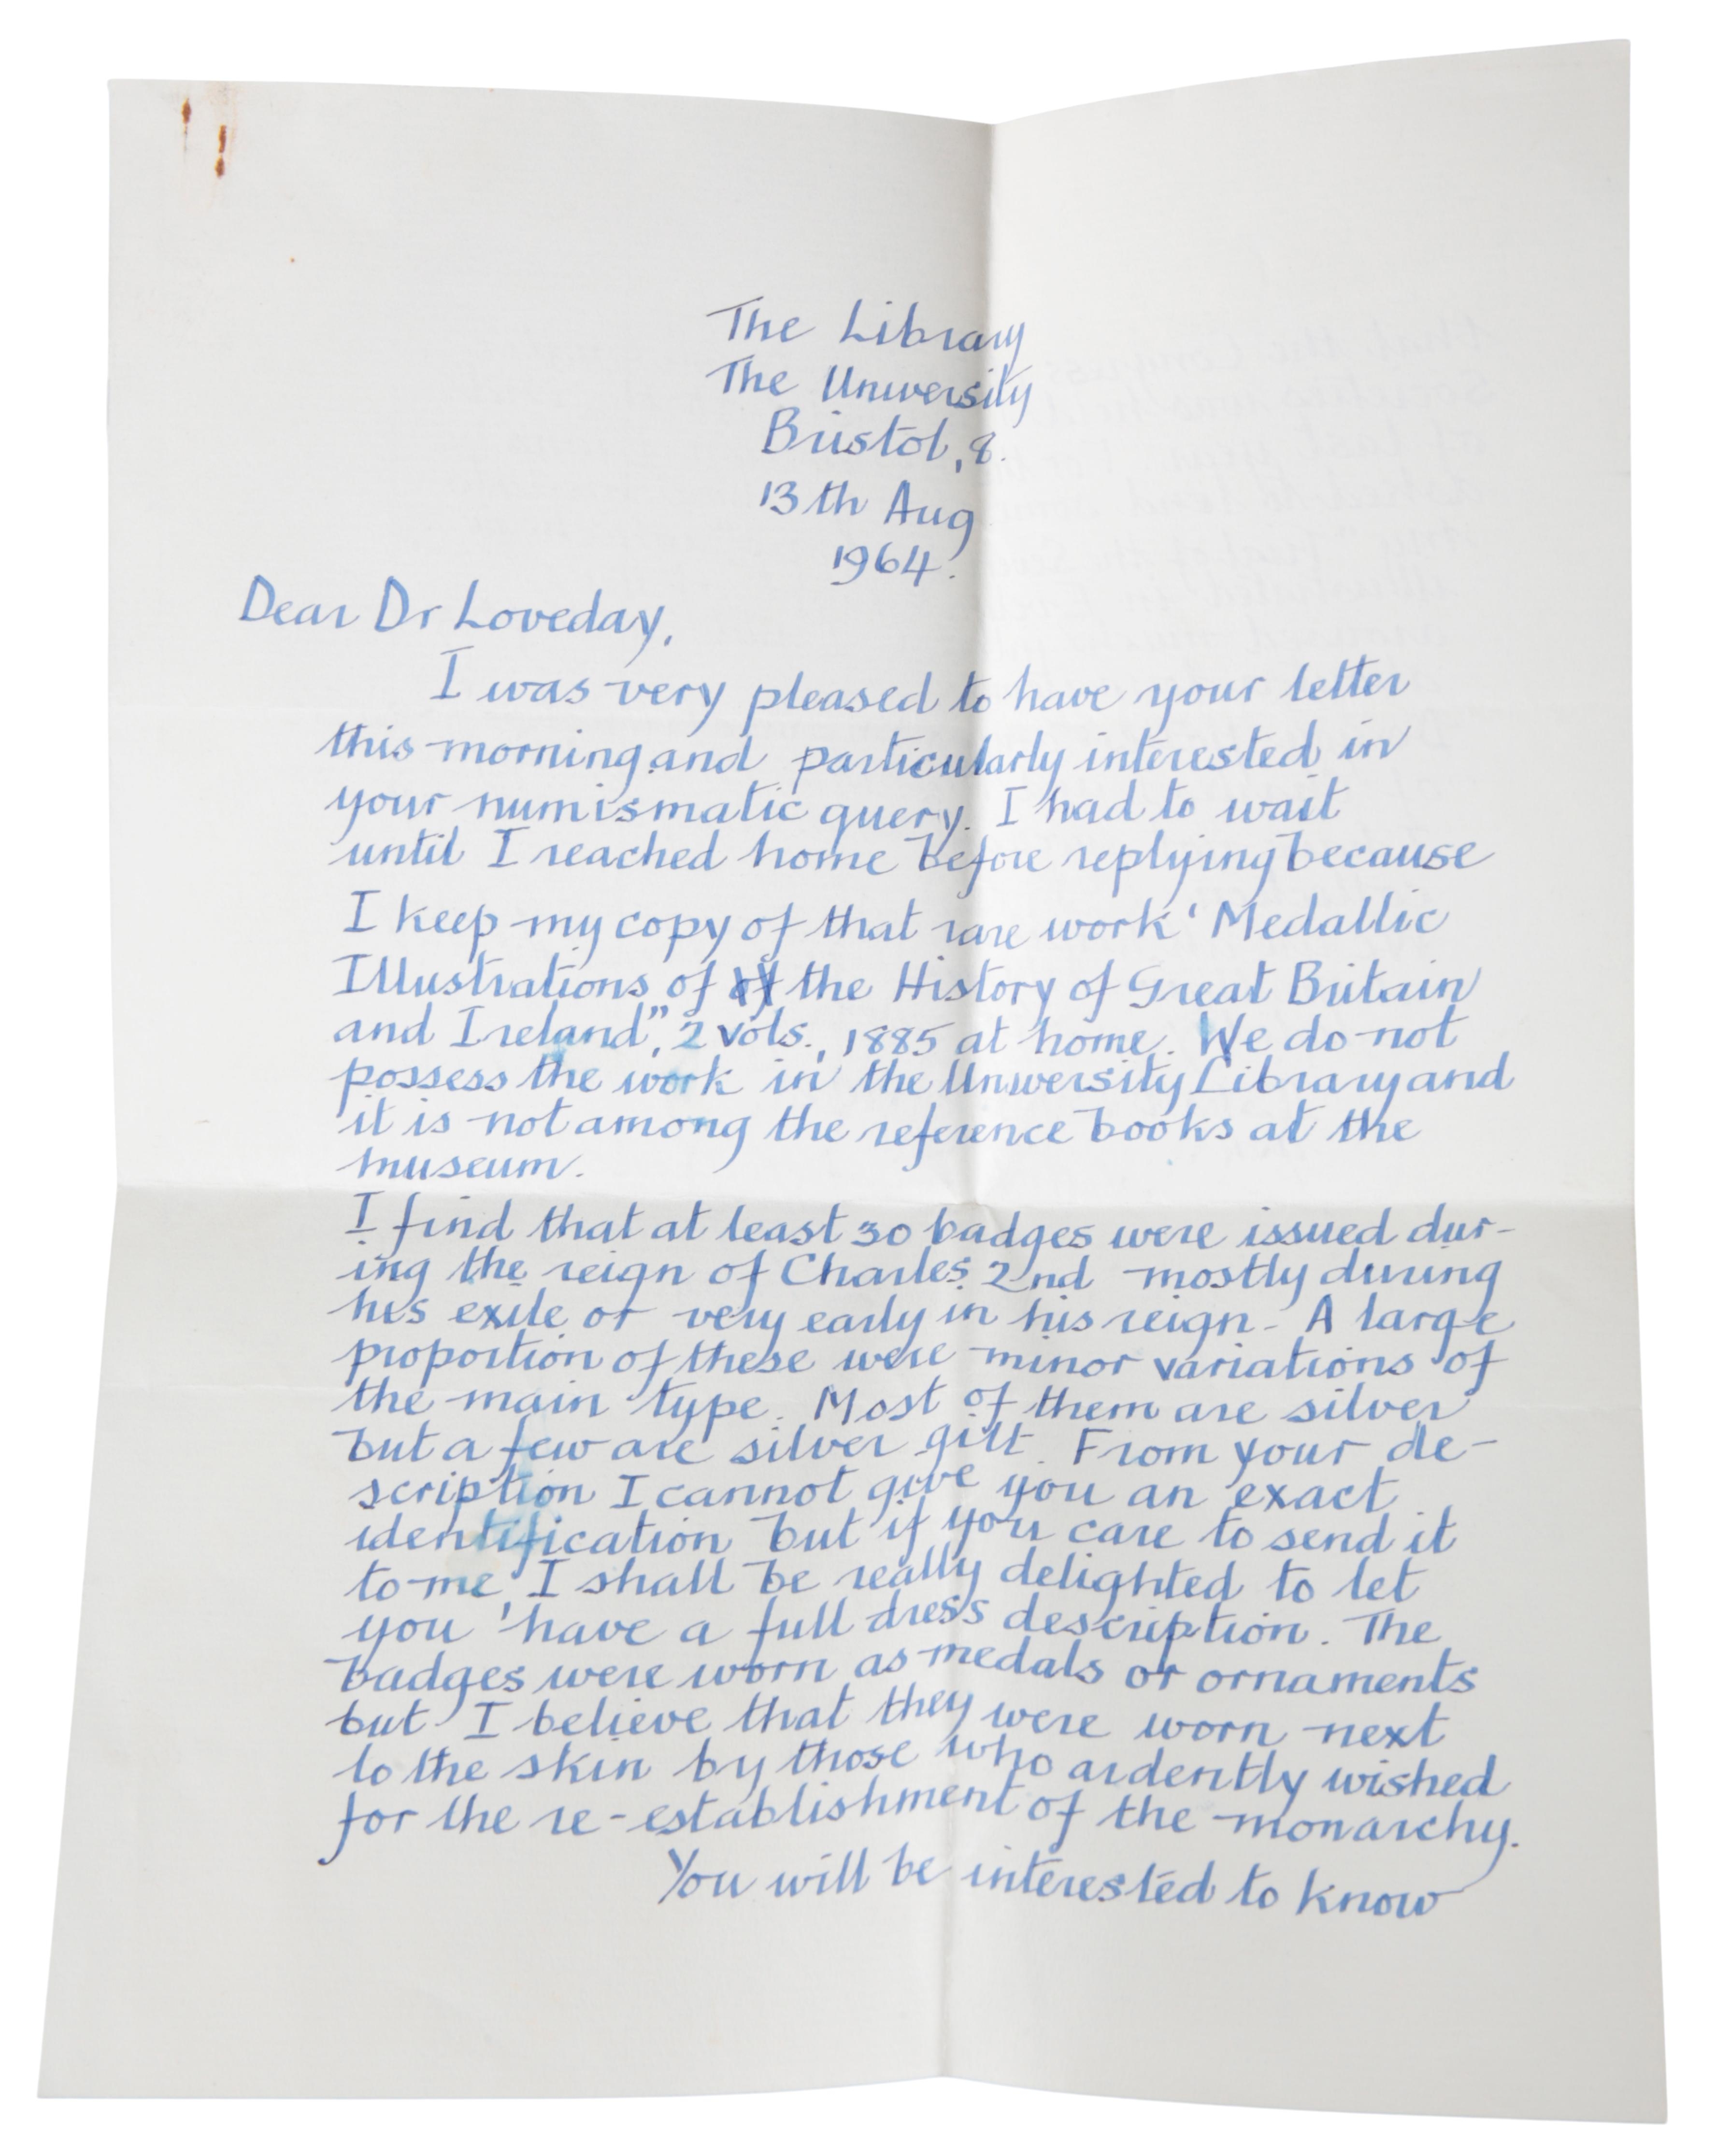 The Library
The University
Bristol, 8.
13th Aug
1964.
Dear Dr Loveday,
I was very pleased to have your letter
this morning and particularly interested in
your numismatic query. I had to wait
until I reached home before replying because
I keep my copy of that rare work 'Medallic
Illustrations of of the History of Great Britain
and Ireland", 2 vols., 1885 at home. We do not
possess the work in the University Library and
it is not among the reference books at the
museum.
I find that at least 30 badges were issued dur-
ing the reign of Charles 2nd mostly during
his exile or very early in his reign - A large
proportion of these were minor variations of
the main type. Most of them are silver
but a few are silver gilt. From your de-
scription I cannot give you an exact
identification but if you care to send it
to me, I shall be really delighted to let
you have a full dress description. The
badges were worn as medals or ornaments
but I believe that they were worn next
to the skin by those who ardently wished
for the re-establishment of the monarchy.
You will be interested to know